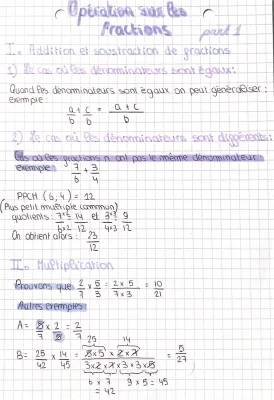 Opération sur les
fractions
part 1
I. Addition et soustraction de fractions
1) Le cas où les dénominateurs sont égaux:
Quand les dénominateurs sont égaux on peut généraliser:
exemple:
a/b + c/b = a+c/b
2) Le cas où les dénominateurs sont différents:
Cas où les fractions n'ont pas le même dénominateur
exemple: 7/6 + 3/4
PPCM (6,4) = 12
(Plus petit multiple commun)
quotients: 7×2/6×2 14/12 et 3×3/4×3 9/12
On obtient alors: 23/12
II. Multiplication
Prouvons que 2/7 × 5/3 = 2×5/7×3 = 10/21
Autres exemples
A = 8/7 × 2/8 = 2/7
25 14
B = 25/42 × 14/45 = 5×5×2×7/3×2×7×3×3×5 = 5/27
6 × 7 9 × 5 = 45
= 42